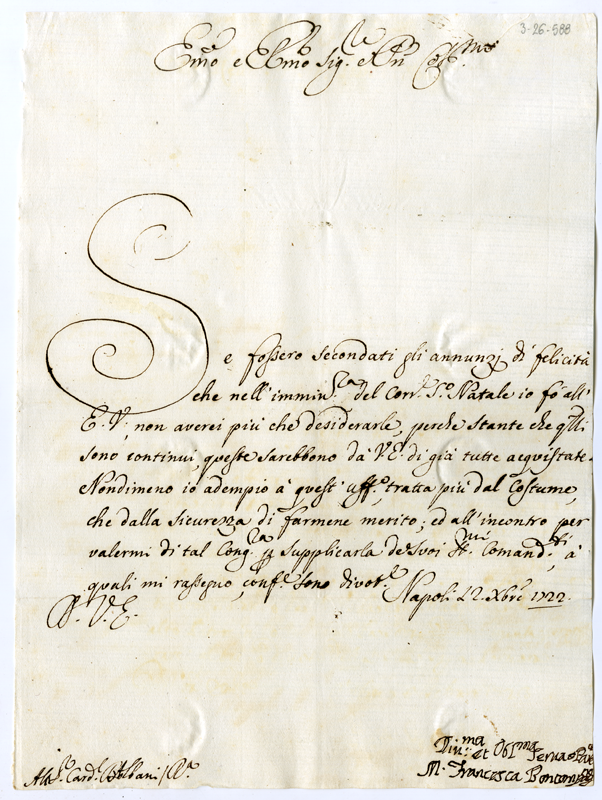 3-26-588
Emo e Rmo Sig.re
Se fossero secondati gli annunzj di felicità
che nell'immin.za del Corr.e S.o Natale io fò all'
E. V., non averei più che desiderarle, perche stante che qlli
sono continui, queste sarebbono da V.E. di già tutte acquistate.
Nondimeno io adempio à quest' uff.o, tratta più dal Costume,
che dalla sicurezza di farmene merito; ed all'incontro per
valermi di tal Cong.ra supplicarla de suoi Comand.ti, à
quali mi rassegno, conf.e sono divot.e Napoli 12. Xbre 1722.
D. V. E.
Div.ma et Obl.ma Serva
M. Francesca
Card.